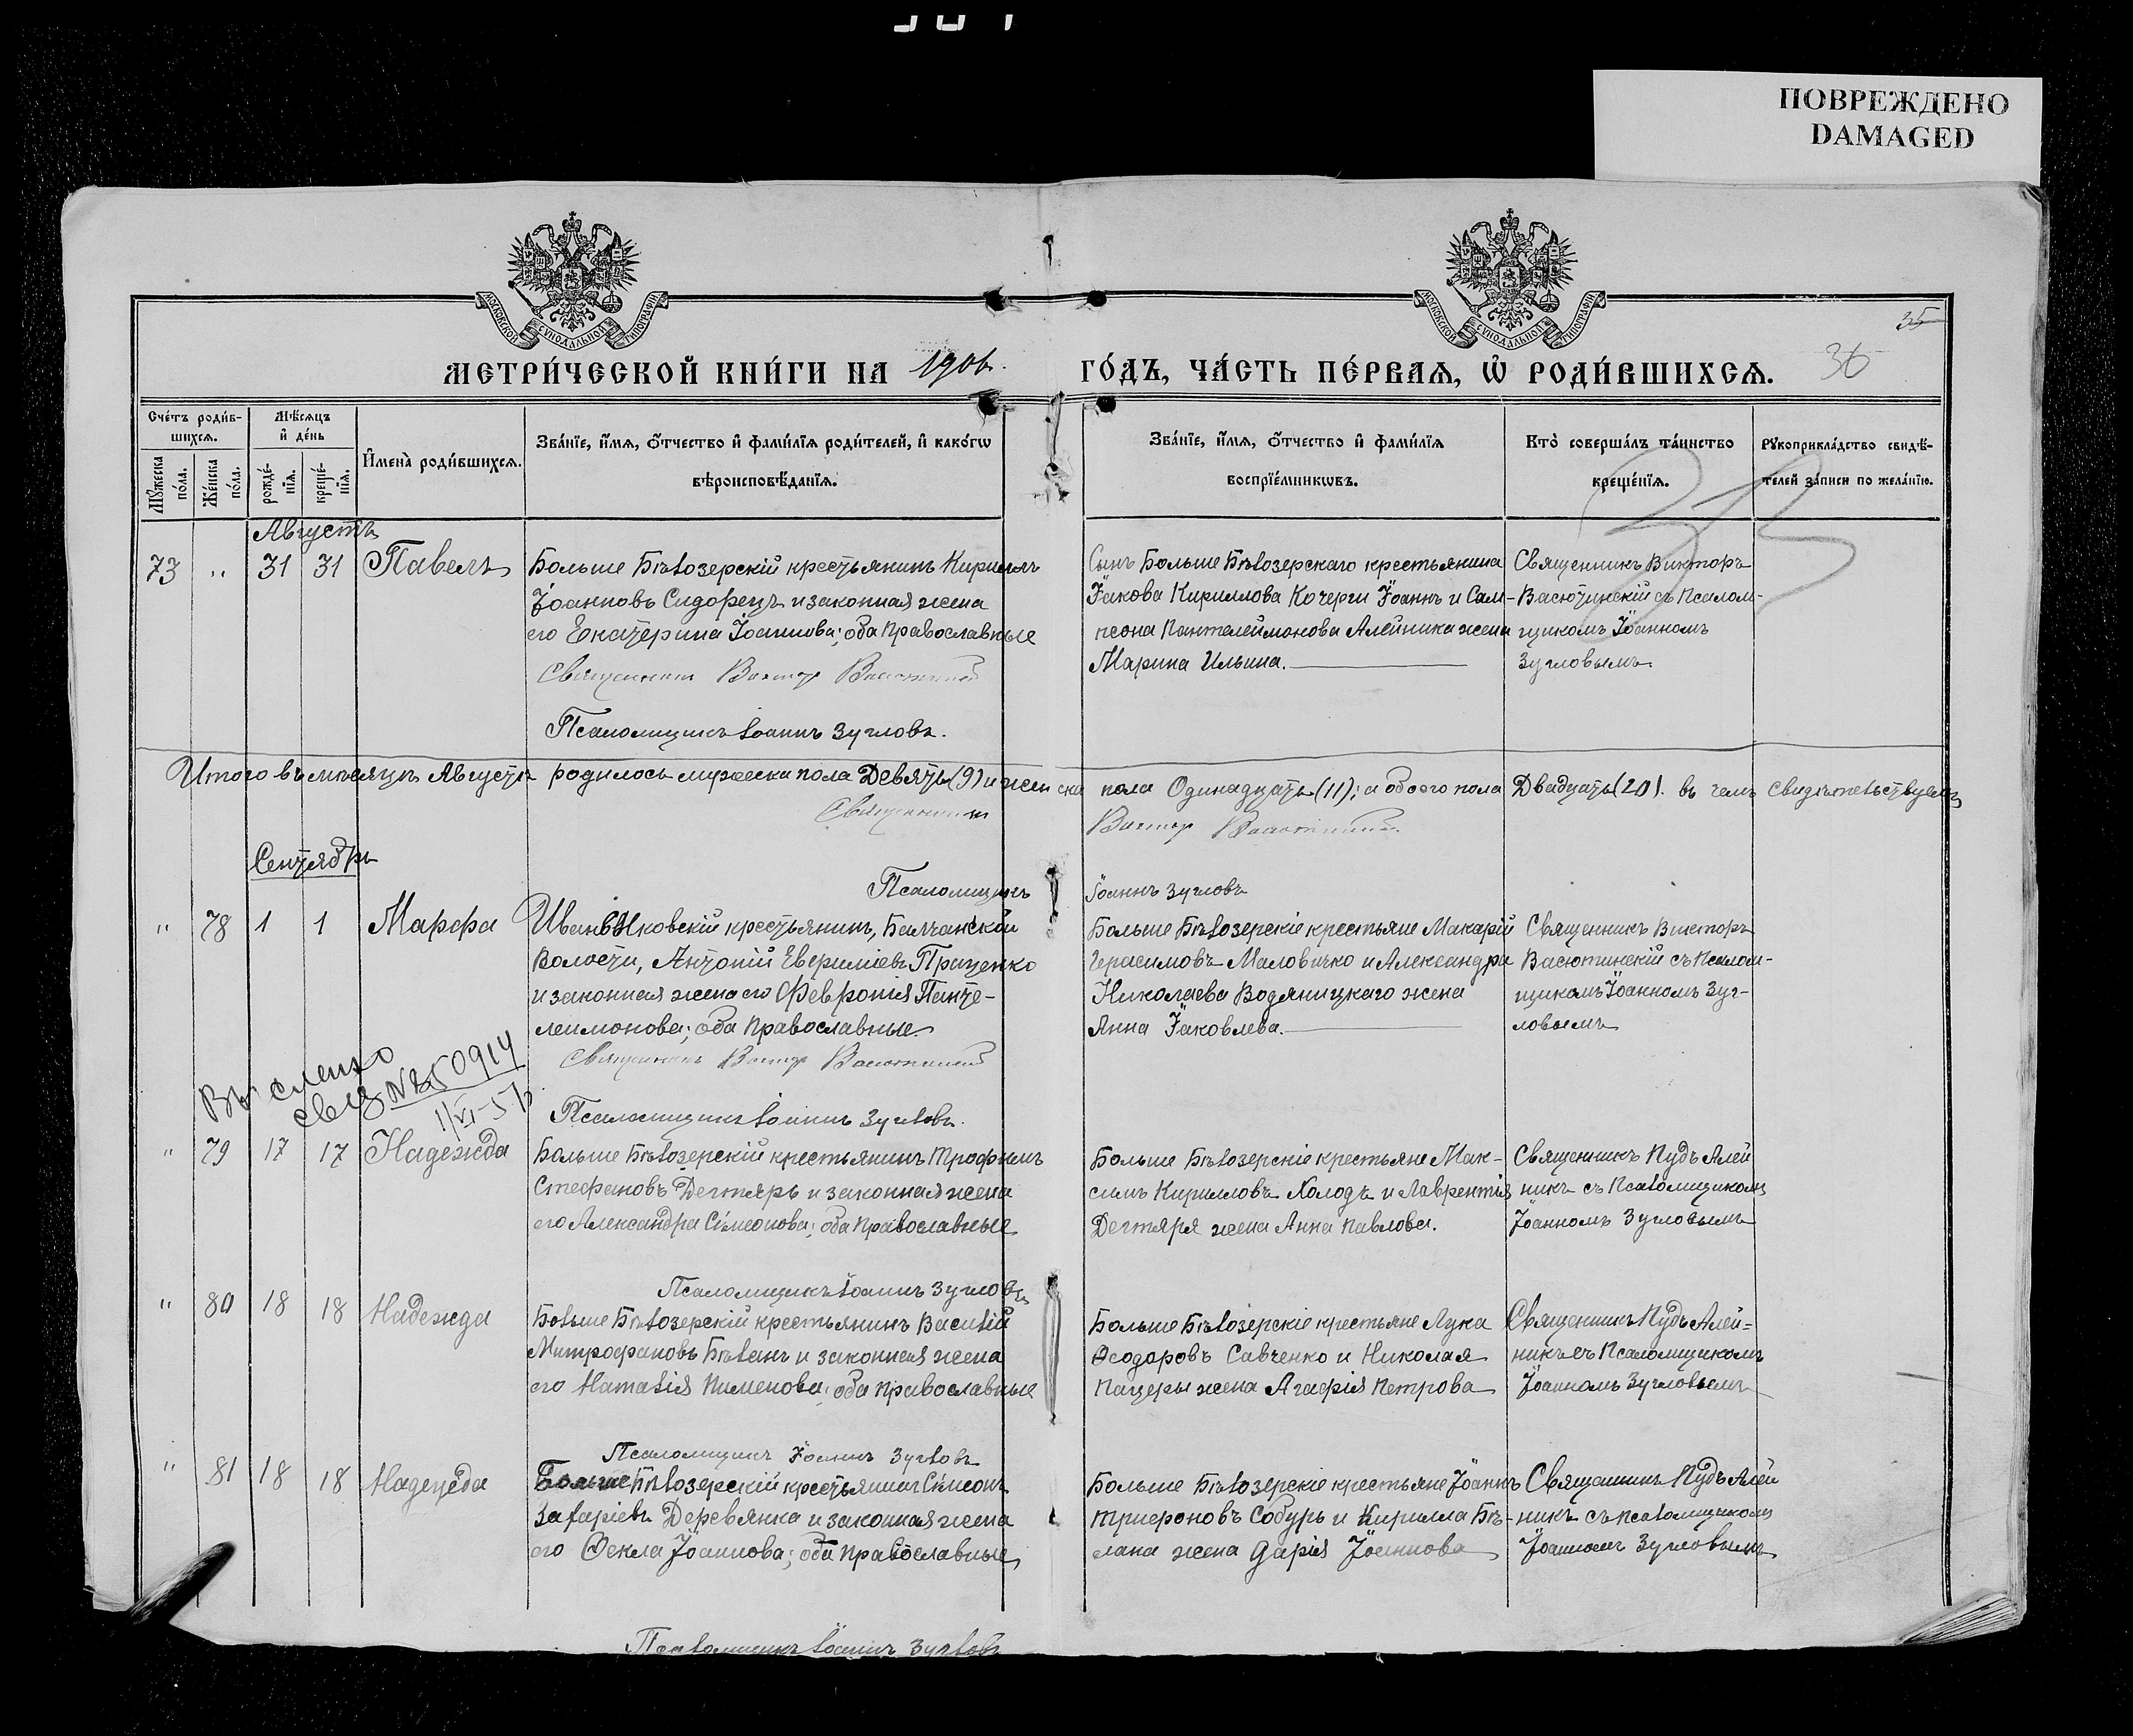 ПОВРЕЖДЕНО
DAMAGED
МОСКОВСКОЙ СѴНОДАЛЬНОЙ ТИПОГРАФІИ
МОСКОВСКОЙ СѴНОДАЛЬНОЙ ТИПОГРАФІИ
35
МЕТРИ́ЧЕСКОЙ КНИ́ГИ НА 1906
ГО́ДЪ, ЧА́СТЬ ПЕ́РВАѦ, Ѡ҆ РОДИ́ВШИХСѦ.
36
Сче́тъ роди́в-
шихсѧ.
Мѣ́сѧцъ
и҆ де́нь
Мꙋ́жеска
по́ла.
Же́нска
по́ла.
рожде́-
нїѧ.
креще́-
нїѧ.
И҆мена̀ роди́вшихсѧ.
Зва́нїе, и҆́мѧ, ѻ҆́тчество и҆ фами́лїѧ роди́телей, и҆ како́гѡ
вѣроисповѣ́данїѧ.
Зва́нїе, и҆́мѧ, ѻ҆́тчество и҆ фами́лїѧ
воспрїе́мникѡвъ.
Кто̀ соверша́лъ та́инство
креще́нїѧ.
Рꙋкоприкла́дство свидѣ́-
телей за́писи по жела́нїю.
35
Августъ
73 " 31 31 Павелъ
Больше Бѣлозерскій крестьянинъ Кириллъ
Іоанновъ Сидорецъ и законная жена
его Екатерина Іоаннова; оба православные
Священникъ Викторъ Васютинскій
Псаломщикъ Іоаннъ Зугловъ.
Сынъ Больше Бѣлозерскаго крестьянина
Іакова Кириллова Кочерги Іоаннъ и Сам-
псона Пантелеимонова Алейника жена
Марина Ильина.
Священникъ Викторъ
Васютинскій съ Псалом-
щикомъ Іоанномъ
Зугловымъ
Итого въ мѣсяцѣ Августѣ родилось мужеска пола Девять (9) и женска пола Одинадцать (11); а обоего пола Двадцать (20). въ чемъ свидѣтельствуемъ
Священникъ Викторъ Васютинскій
Сентябрь
Псаломщикъ Іоаннъ Зугловъ
" 78 1 1 Марфа
крестьянинъ, Балчанской
Волости, Антоній Евфиміевъ Проценко
и законная жена его Февронія Панте-
леимонова; оба православные
Священникъ Викторъ Васютинскій
Псаломщикъ Іоаннъ Зугловъ.
Больше Бѣлозерскіе крестьяне Макарій
Герасимовъ Маловичко и Александра
Николаева Водяницкаго жена
Анна Іаковлева.
Священникъ Викторъ
Васютинскій съ Псалом-
щикомъ Іоанномъ Зуг-
ловымъ
1/VI-5
" 79 17 17 Надежда
Больше Бѣлозерскій крестьянинъ Трофимъ
Стефановъ Дегтярь и законная жена
его Александра Сімеонова; оба православные
Псаломщикъ Іоаннъ Зугловъ
Больше Бѣлозерскіе крестьяне Мак-
симъ Кирилловъ Холодъ и Лаврентія
Дегтяря жена Анна Павлова.
Священникъ Пудъ Алей
никъ съ Псаломщикомъ
Іоанномъ Зугловымъ
" 80 18 18 Надежда
Больше Бѣлозерскій крестьянинъ Василій
Митрофановъ Бѣланъ и законная жена
его Наталія Пименова; оба православные
Псаломщикъ Іоаннъ Зугловъ
Больше Бѣлозерскіе крестьяне Лука
Ѳеодоровъ Савченко и Николая
Пацеры жена Агафія Петрова
Священникъ Пудъ Алей=
никъ съ Псаломщикомъ
Іоанномъ Зугловымъ
" 81 18 18 Надежда
Больше Бѣлозерскій крестьянинъ Сімеонъ
Захаріевъ Деревянка и законная жена
его Ѳекла Іоаннова; оба православные
Псаломщикъ Іоаннъ Зугловъ
Больше Бѣлозерскіе крестьяне Іоаннъ
Трифоновъ Собурь и Кирилла Бѣ-
лана жена Дарія Іоаннова
Священникъ Пудъ Алей
никъ съ псаломщикомъ
Іоанномъ Зугловымъ